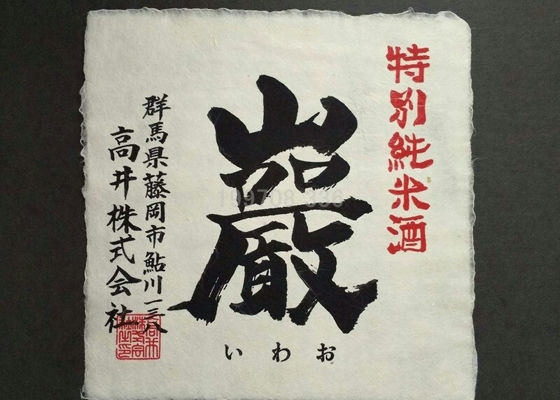 特別純米酒
巖
いわお
群馬県藤岡市鮎川一三八
高井株式会社